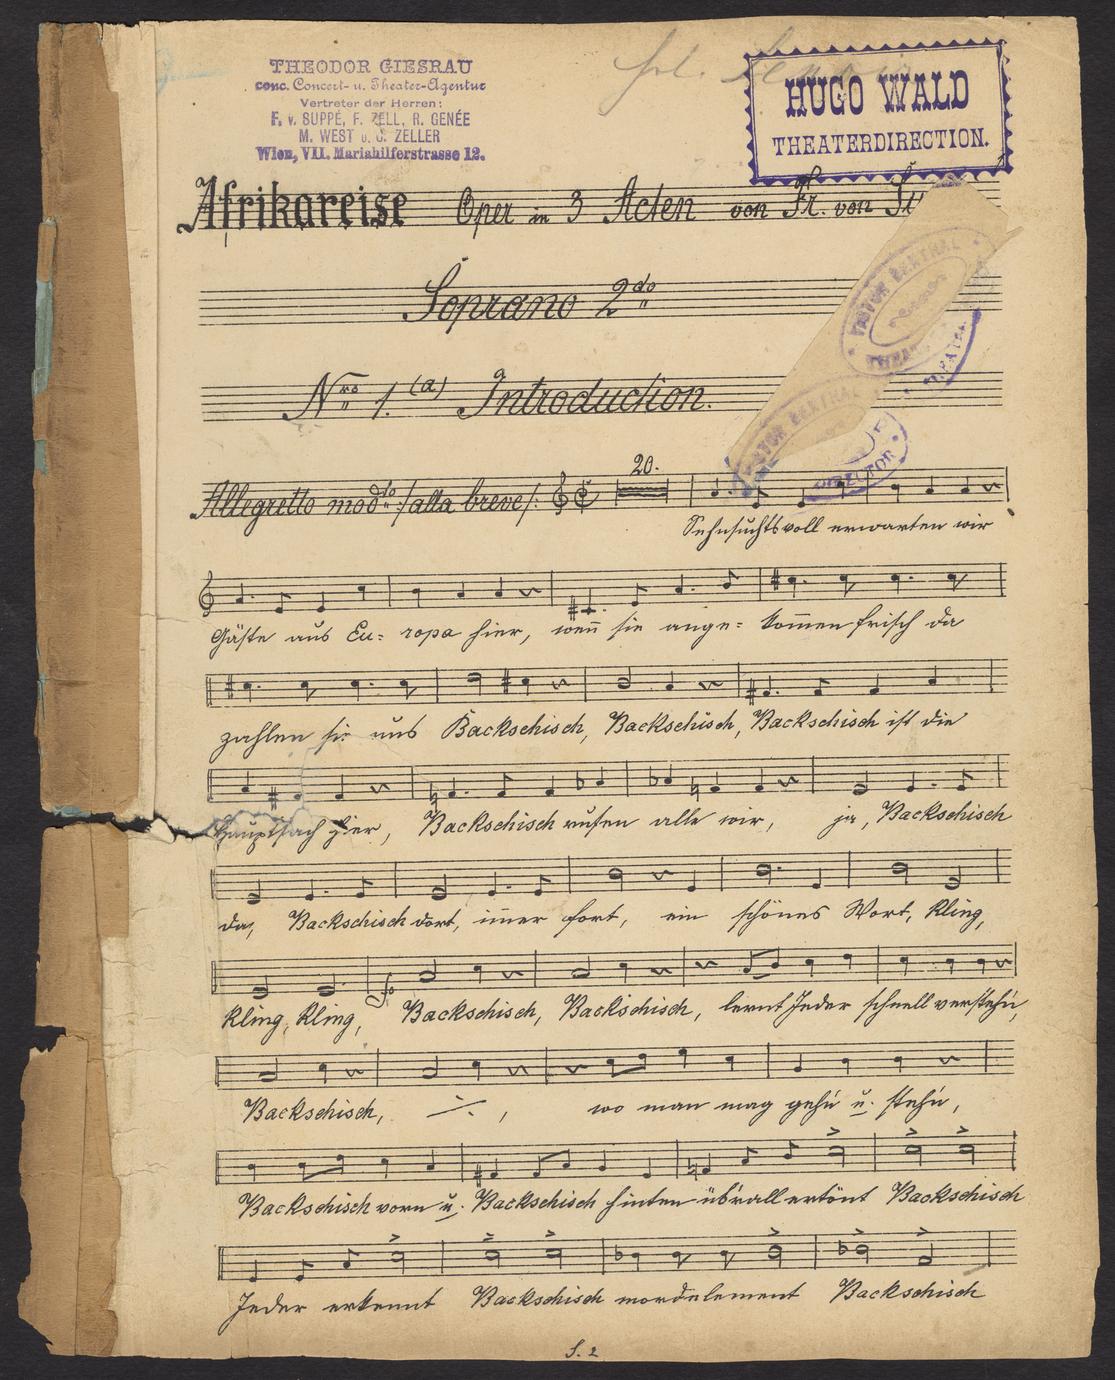 THEODOR GIESRAU
conc. Concert- u. Theater-Agentur
Vertreter der Herren:
F. v. SUPPÉ, F. ZELL, R. GENÉE
M. WEST u. C. ZELLER
Wien, VII. Mariahilferstrasse 12.
HUGO WALD
THEATERDIRECTION.
Afrikareise Oper in 3 Acten von Fr. von
Soprano 2do
VICTOR BERTHAL
THEATER
VICTOR BERTHAL
DIRECTOR
Nro 1. (a) Introduction.
20.
Allegretto modto /:alla breve/:
Sehnsuchtsvoll erwarten wir
Gäste aus Eu= ropa hier, wen̄ sie ange= kom̄en frisch da
zahlen sie uns Backschisch, Backschisch, Backschisch ist die
Hauptsach hier, Backschisch rufen alle wir, ja, Backschisch
da, Backschisch dort, im̄er fort, ein schönes Wort, Kling,
Kling, Kling, Backschisch, Backschisch, lernt Jeder schnell versteh'n,
Backschisch, ·/· , wo man mag geh'n u. steh'n,
Backschisch vorn u. Backschisch hinten üb'rall ertönt Backschisch
Jeder erkennt Backschisch mordelement Backschisch
S. 2